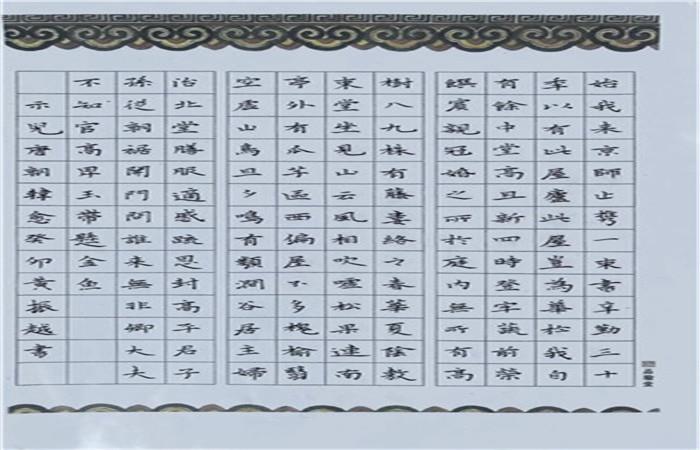 始我来京師止携一束書辛勤三十
年以有此屋廬此屋豈為華於我自
有餘中堂高且新四時登牢蔬前榮
饌賓親冠婚之所於庭内無所有高
樹八九株有藤婁絡々春華夏陰敷
東堂坐見山云風相吹嘘松果連南
亭外有瓜芋區西偏屋不多槐榆翳
空虛山鳥旦夕鳴有類澗谷居主婦
治北堂膳服適戚疏恩封高平君子
孫從朝裾開門問誰來無非卿大夫
不知官高卑玉帶懸金魚
示兒唐朝韓愈癸卯黃振越書